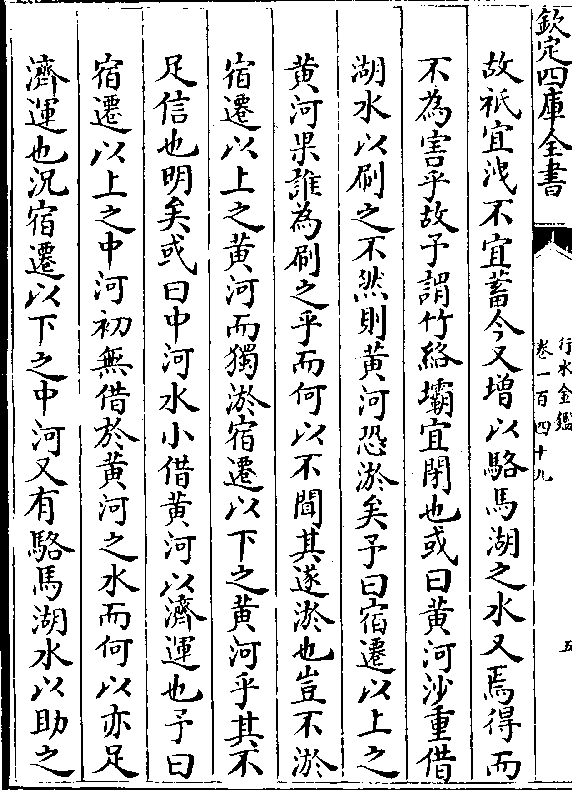 欽定四庫全書
行水金鑑
卷一百四十九
五
故祇宜洩不宜蓄今又增以駱馬湖之水又焉得而
不為害乎故予謂竹絡壩宜閉也或曰黄河沙重借
湖水以刷之不然則黄河恐淤矣予曰宿遷以上之
黄河果誰為刷之乎而何以不聞其遂淤也豈不淤
宿遷以上之黄河而獨淤宿遷以下之黄河乎其不
足信也明矣或曰中河水小借黄河以濟運也予曰
宿遷以上之中河初無借於黄河之水而何以亦足
濟運也況宿遷以下之中河又有駱馬湖水以助之